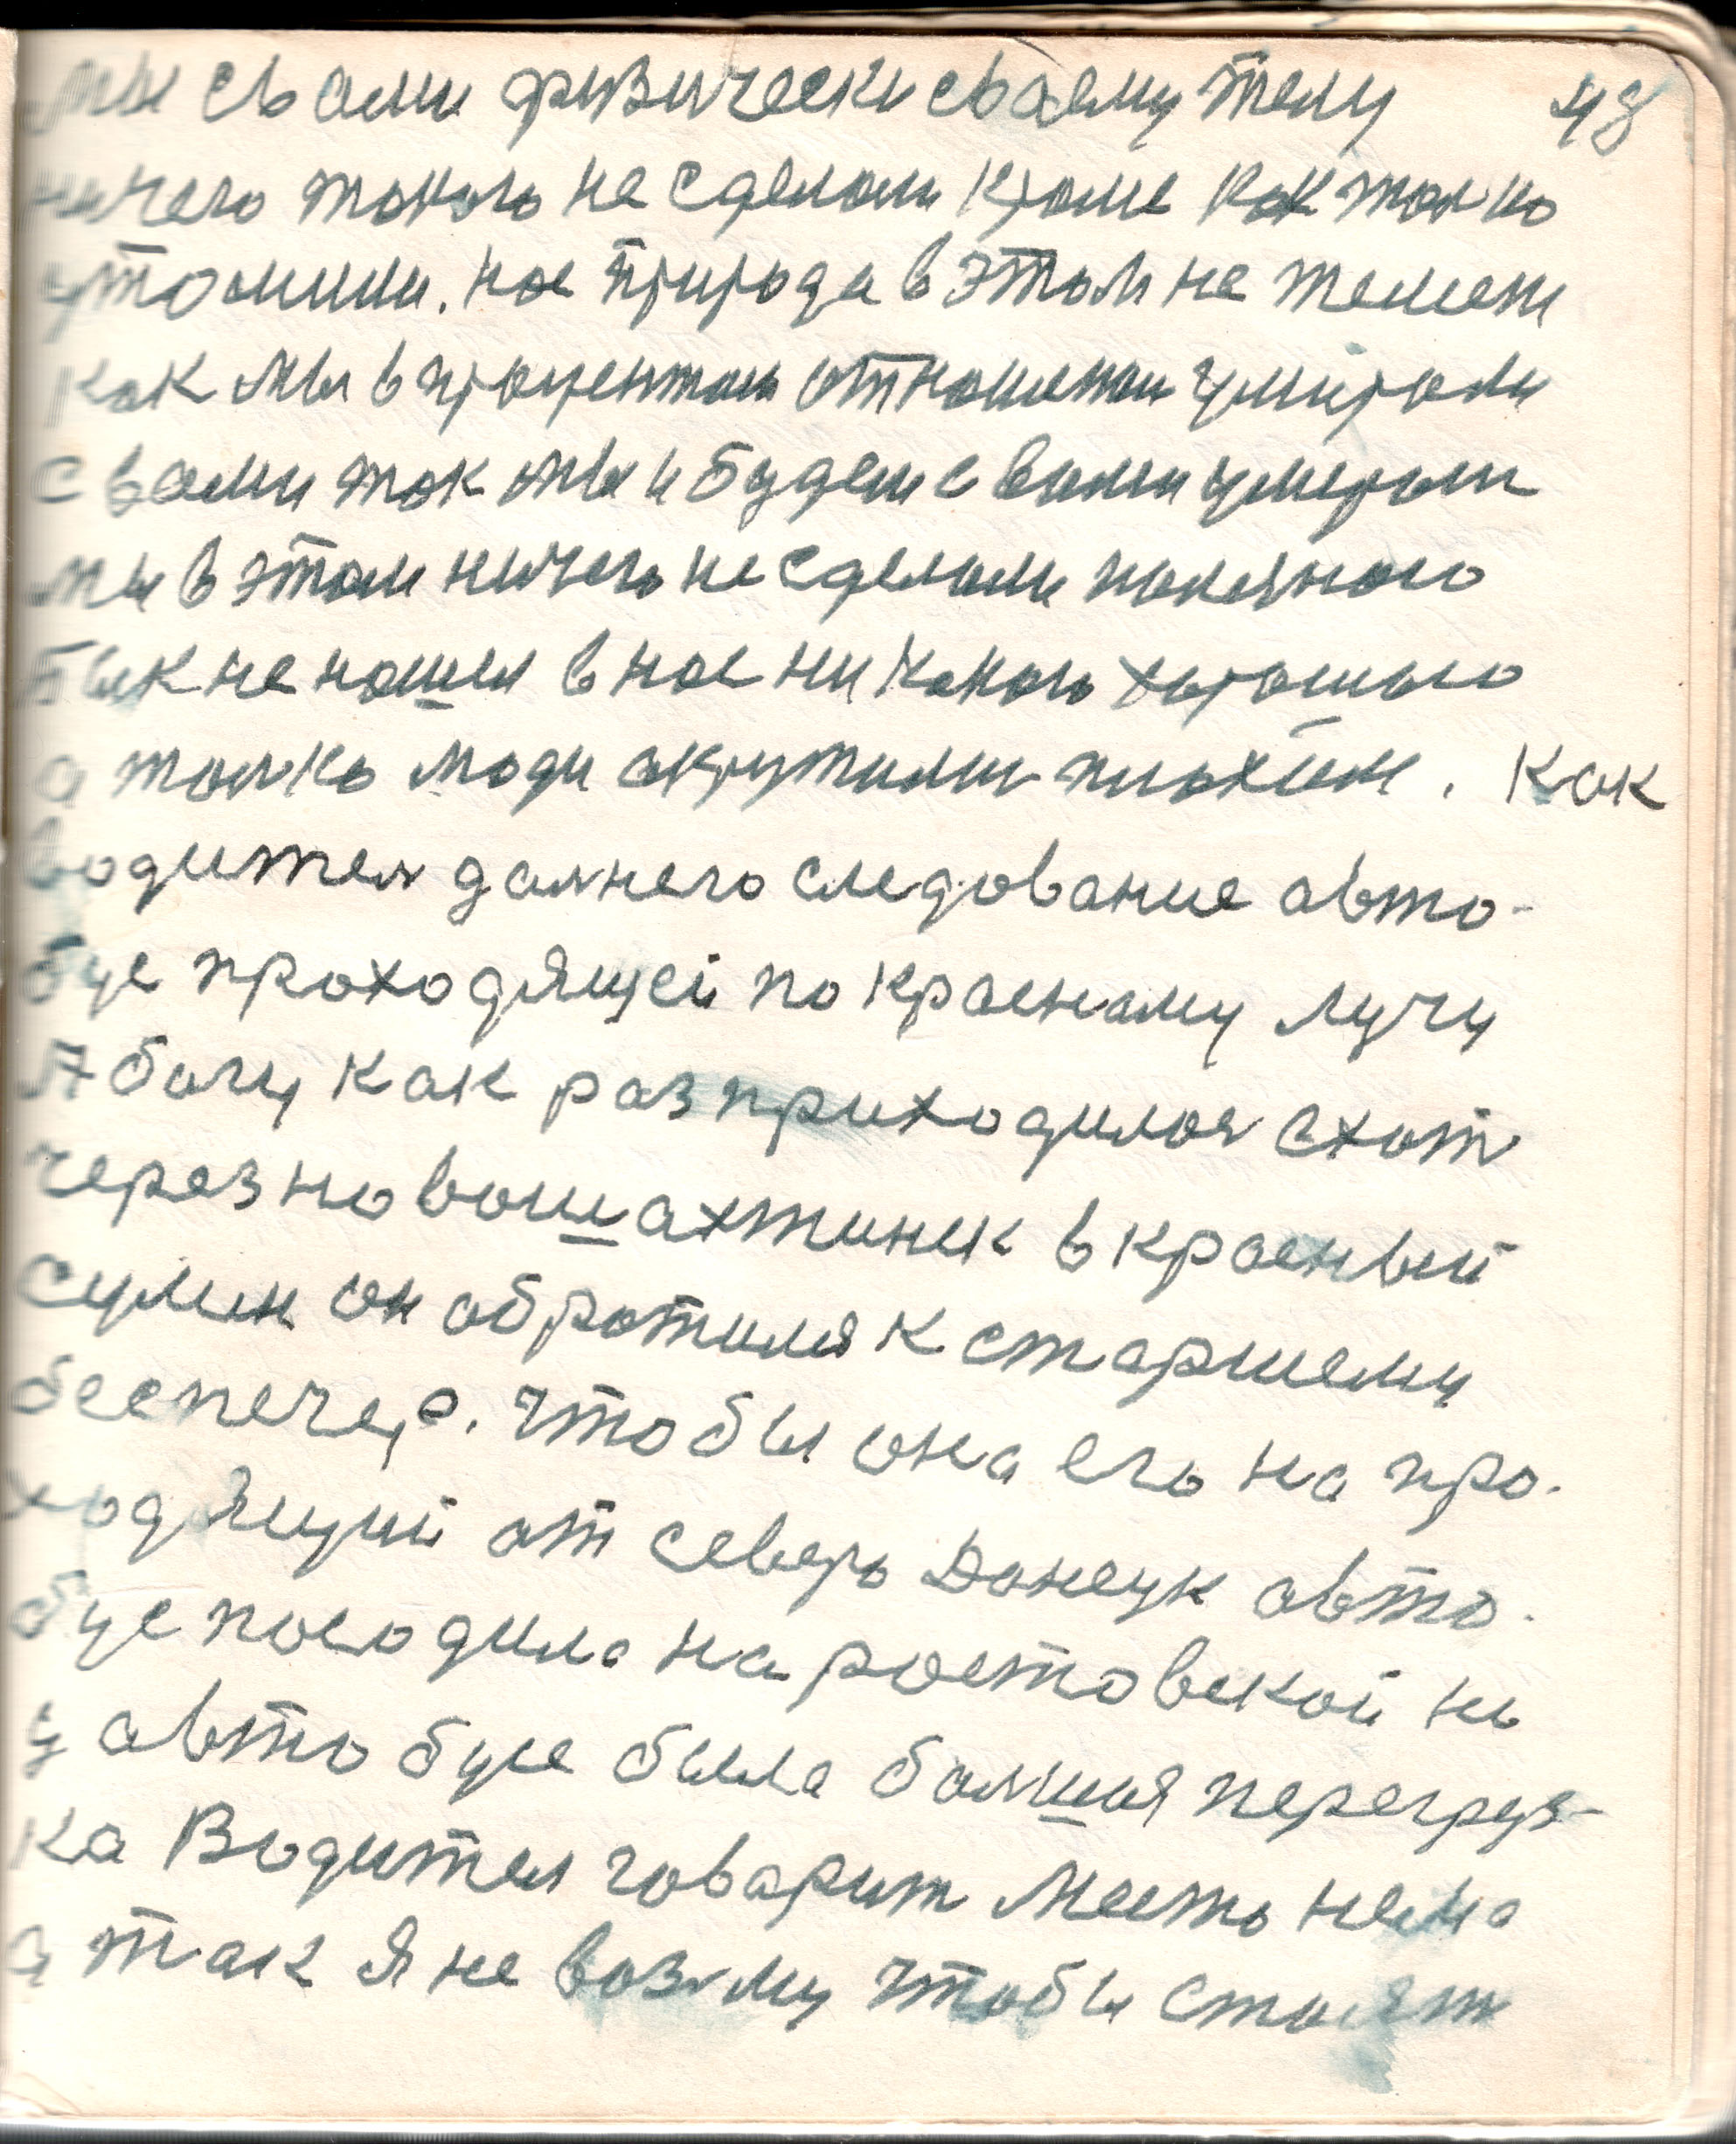 мы свами физически сваему телу 48
ничего такого не сделали кроме как только
утомили. нас природа в этом не жалеет
как мы в процентам отношении умирали
с вами так мы и будем с вами умерат
мы в этом ничего не сделали полезного
Бык не нашел в нас ни какого хорошого
а только люди окрутили плохим. Как
водител далнего следование авто-
бус проходящей по Красному лучу
Я бачу как раз приходилос ехат
через новошахтинск в красный
Сулин он обратился к старшему
деспечер. чтобы она его на про-
ходящий от Северо Донецк авто-
бус посадила на ростовской но
у автобусе была большая перегруз-
ка Водител говарит место нема
а так я не возьму чтобы стоят